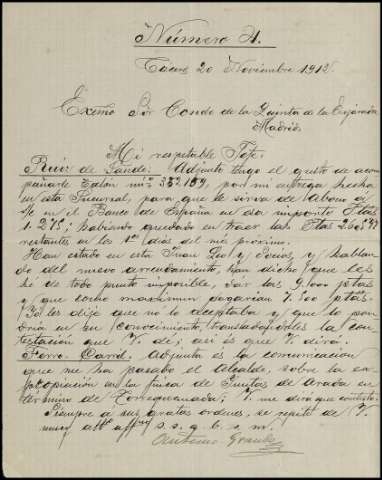 Número 4.
Caceres 20 Noviembre 1912.
Exmo Sr Conde de la Quinta de la Enjarada
Madrid.
Mi respetable Jefe:
Ruiz de Gande: Adjunto tengo el gusto de acom
pañarle talón nº 332.189, por mi entrega hecha
en esta Sucursal, para que le sirva de abono á
s/c en el Banco de España en
1.275; habiendo quedado en traer las Ptas
restantes en los 1ros dias del mes próximo.
Han estado en esta Juan y y hablan
do del nuevo arrendamiento, han dicho que les
es de todo punto imposible, dar las 9.000 ptas
y que como maximun pagarian 7.500 ptas.
Yo les dije que no lo aceptaba y que lo pon
dria en su conocimiento, trasladandoles la con
testacion que V. dé; asi es que V. dirá.
Ferro-Carril. Adjunta es la comunicacion
que me ha pasado el Alcalde, sobre la ex
propiacion en la finca de Suertes de Arada en
término de Torrequemada; V. me dirá que contesto.
Siempre a sus gratas ordenes, se repite de V.
muy atto s. s. q. b. s. m.
Antonio